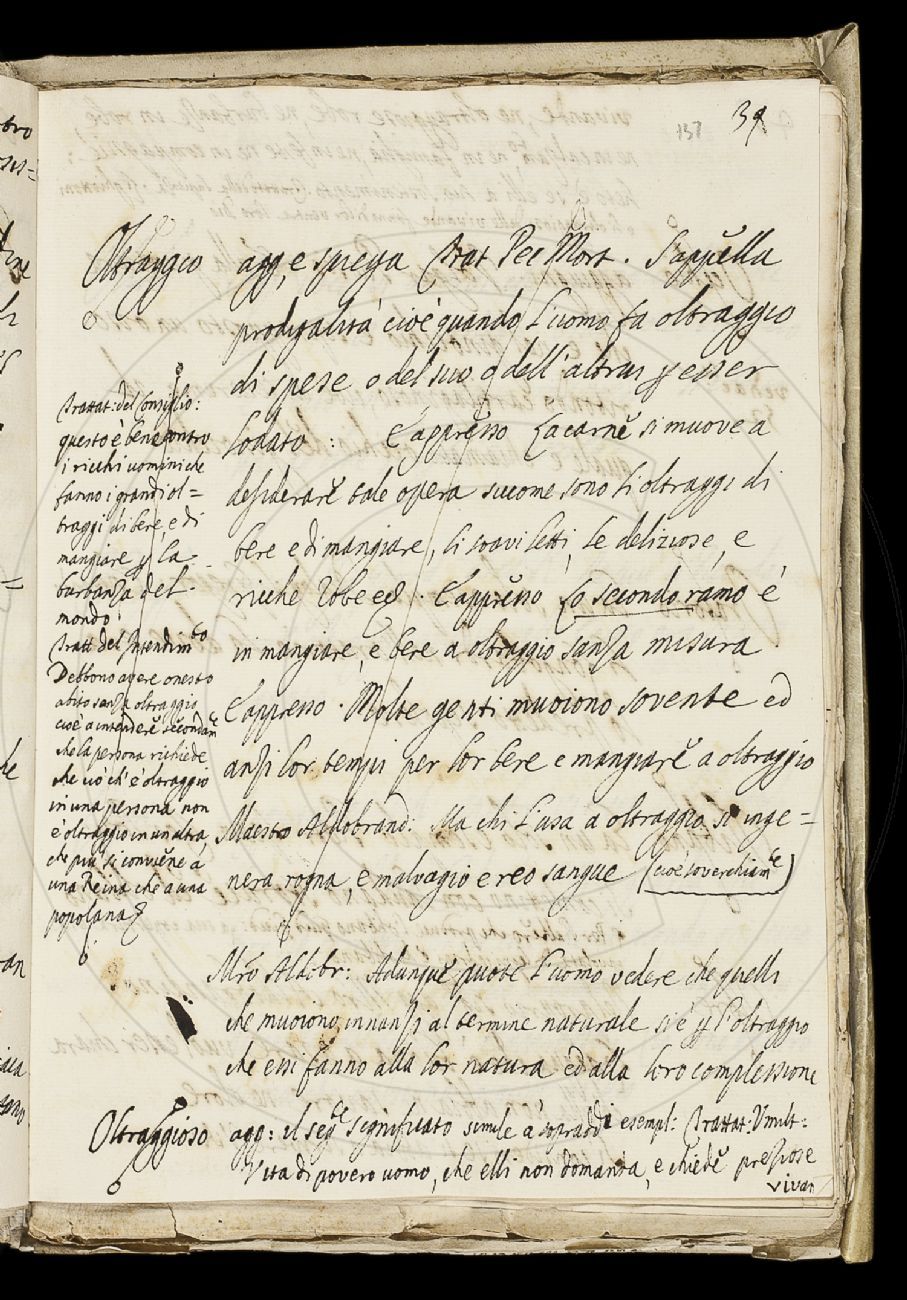 137 39
Oltraggio agg, e spiega Trat Pec Mort. S'appella
prodigalità cioè quando l'uomo fa oltraggio
di spese o del suo o dell'altrui p esser
lodato: E appresso La carne si muove a
desiderare tale opera siccome sono li oltraggi di
bere e di mangiare, li soavi letti, le deliziose, e
ricche robe ec. E appresso Lo secondo ramo è
in mangiare, e bere a oltraggio sanza misura
E appresso. Molte genti muoiono sovente ed
anzi lor tempi per lor bere e mangiare a oltraggio
Maestro Aldobrand: Ma chi l'usa a oltraggio si inge=
nera rogna, e malvagio e reo sangue (cioè soverchiamte)
Trattat: del Consiglio:
questo è bene contro
i ricchi uomini che
fanno i grandi ol=
traggi di bere, e di
mangiare p la
burbanza del
mondo.
Tratt del Intendimto
Debbono avere onesto
abito sanza oltraggio
cioè a intendere secondamte
che la persona richiede
che ciò ch'è oltraggio
in una persona non
è oltraggio in un altra,
che più si conviene a
una Reina che a una
popolana
Mro Aldobr: Adunque puote l'uomo vedere che quelli
che muoiono innanzi al termine naturale si è p l'oltraggio
che essi fanno alla lor natura ed alla loro complessione
Oltraggioso agg: il segte significato simile a' sopraddi esempl: Trattat: Umilt:
Vita di povero uomo, che elli non domanda, e chiede preziose
vivan